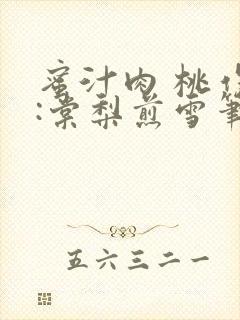 蜜汁肉桃作
:棠梨煎雪筆
五六三二一